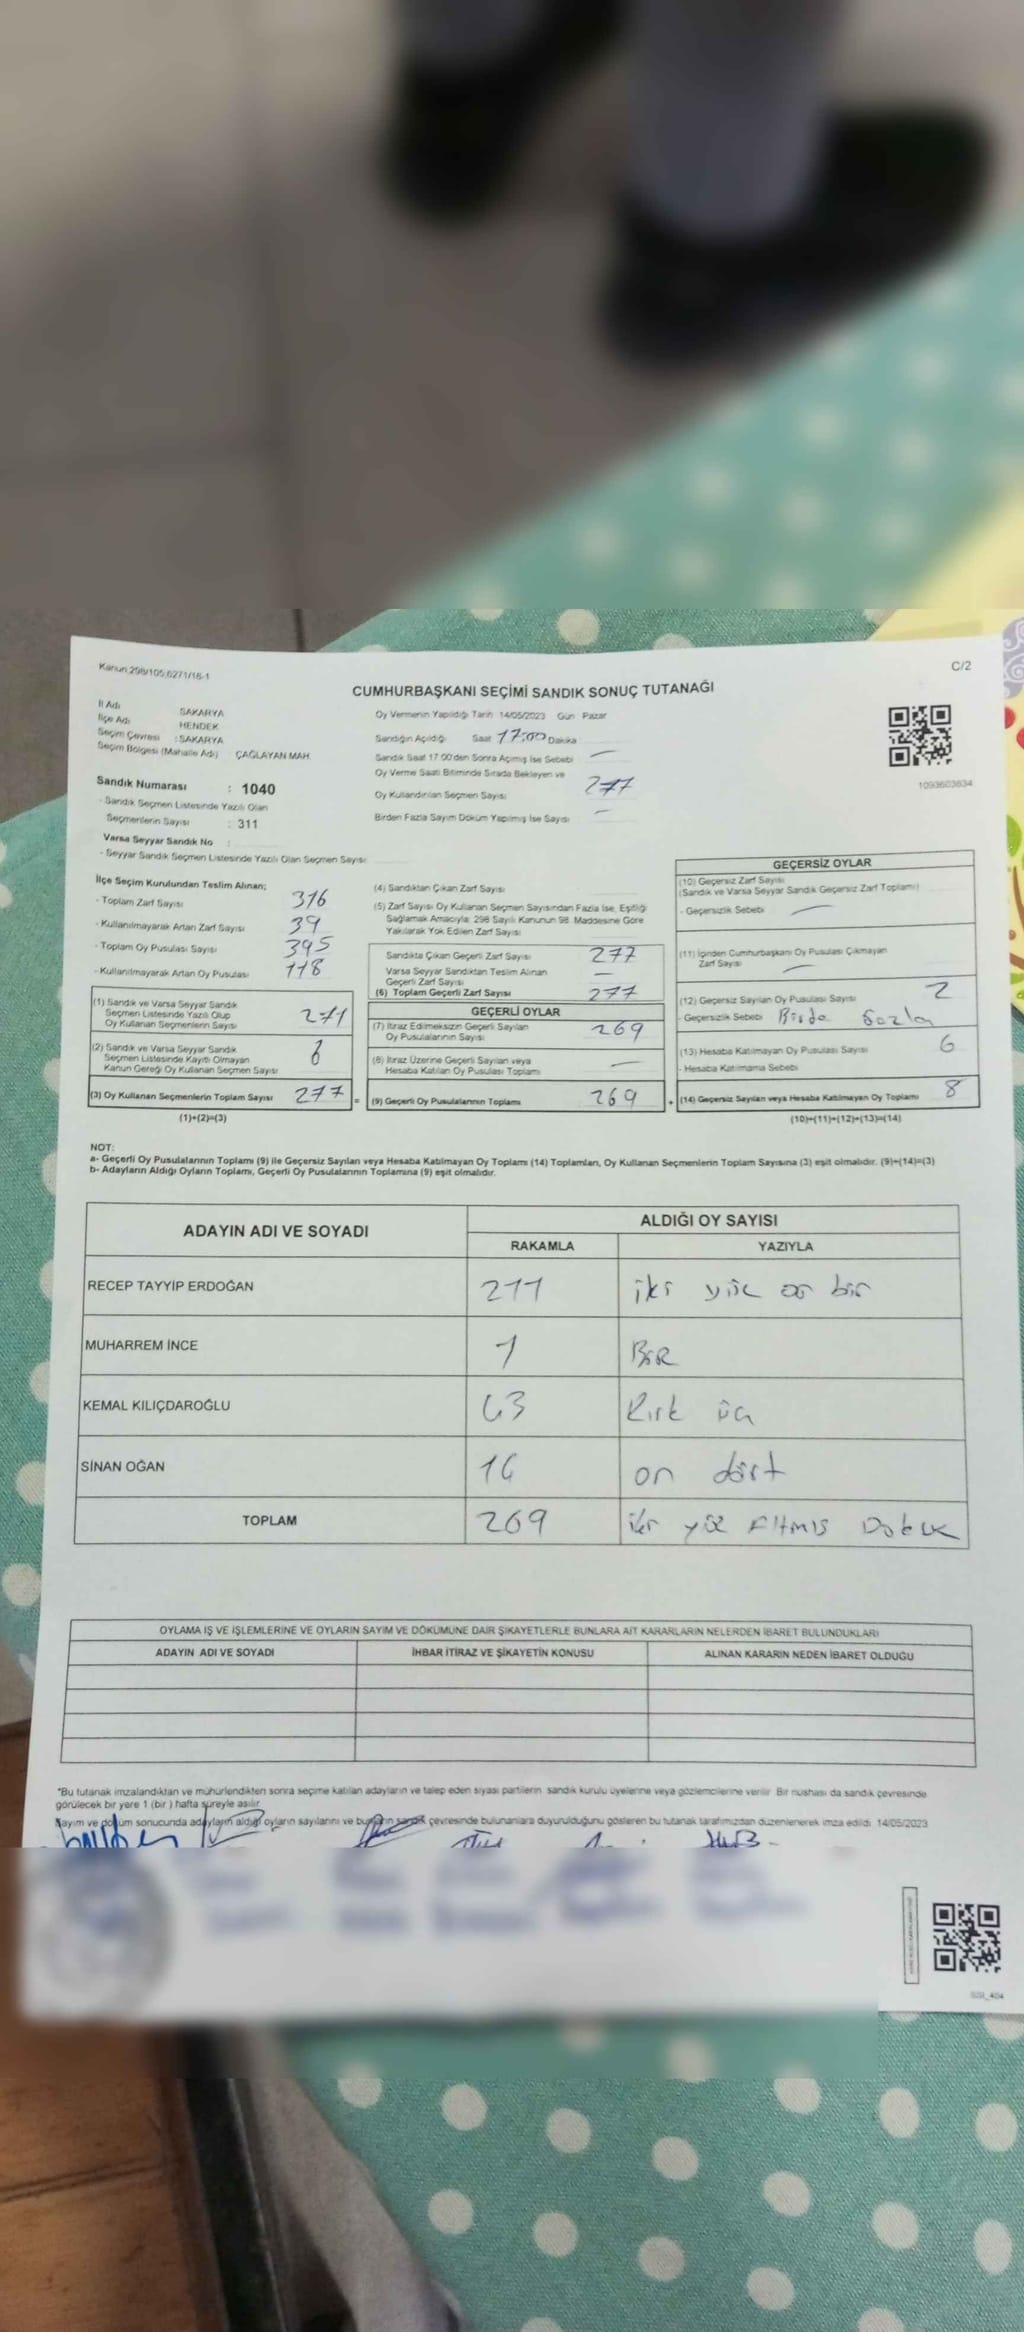 Kanun:298/105,6271/18-1
C/2
CUMHURBAŞKANI SEÇİMİ SANDIK SONUÇ TUTANAĞI
İl Adı SAKARYA
İlçe Adı HENDEK
Seçim Çevresi : SAKARYA
Seçim Bölgesi (Mahalle Adı) ÇAĞLAYAN MAH.
Sandık Numarası : 1040
- Sandık Seçmen Listesinde Yazılı Olan
Seçmenlerin Sayısı : 311
Varsa Seyyar Sandık No :
- Seyyar Sandık Seçmen Listesinde Yazılı Olan Seçmen Sayısı:
Oy Vermenin Yapıldığı Tarih 14/05/2023 Gün Pazar
Sandığın Açıldığı Saat 17:00 Dakika
Sandık Saat 17:00'den Sonra Açımış İse Sebebi —
Oy Verme Saati Bitiminde Sırada Bekleyen ve
Oy Kullandırılan Seçmen Sayısı 277
Birden Fazla Sayım Döküm Yapılmış İse Sayısı —
1093603634
İlçe Seçim Kurulundan Teslim Alınan;
- Toplam Zarf Sayısı 316
- Kullanılmayarak Artan Zarf Sayısı 39
- Toplam Oy Pusulası Sayısı 395
- Kullanılmayarak Artan Oy Pusulası 118
(1) Sandık ve Varsa Seyyar Sandık
Seçmen Listesinde Yazılı Olup
Oy Kullanan Seçmenlerin Sayısı 271
(2) Sandık ve Varsa Seyyar Sandık
Seçmen Listesinde Kayıtlı Olmayan
Kanun Gereği Oy Kullanan Seçmen Sayısı
(3) Oy Kullanan Seçmenlerin Toplam Sayısı 277 =
(1)+(2)=(3)
(4) Sandıktan Çıkan Zarf Sayısı
(5) Zarf Sayısı Oy Kullanan Seçmen Sayısından Fazla İse, Eşitliği
Sağlamak Amacıyla; 298 Sayılı Kanunun 98. Maddesine Göre
Yakılarak Yok Edilen Zarf Sayısı
Sandıkta Çıkan Geçerli Zarf Sayısı 277
Varsa Seyyar Sandıktan Teslim Alınan
Geçerli Zarf Sayısı —
(6) Toplam Geçerli Zarf Sayısı 277
GEÇERLİ OYLAR
(7) İtiraz Edilmeksizin Geçerli Sayılan
Oy Pusulalarının Sayısı 269
(8) İtiraz Üzerine Geçerli Sayılan veya
Hesaba Katılan Oy Pusulası Toplamı —
(9) Geçerli Oy Pusulalarının Toplamı 269 +
GEÇERSİZ OYLAR
(10) Geçersiz Zarf Sayısı
(Sandık ve Varsa Seyyar Sandık Geçersiz Zarf Toplamı)
- Geçersizlik Sebebi —
(11) İçinden Cumhurbaşkanı Oy Pusulası Çıkmayan
Zarf Sayısı —
(12) Geçersiz Sayılan Oy Pusulası Sayısı 2
- Geçersizlik Sebebi Birde fazla
(13) Hesaba Katılmayan Oy Pusulası Sayısı 6
- Hesaba Katılmama Sebebi
(14) Geçersiz Sayılan veya Hesaba Katılmayan Oy Toplamı 8
(10)+(11)+(12)+(13)=(14)
NOT:
a- Geçerli Oy Pusulalarının Toplamı (9) ile Geçersiz Sayılan veya Hesaba Katılmayan Oy Toplamı (14) Toplamları, Oy Kullanan Seçmenlerin Toplam Sayısına (3) eşit olmalıdır. (9)+(14)=(3)
b- Adayların Aldığı Oyların Toplamı, Geçerli Oy Pusulalarının Toplamına (9) eşit olmalıdır.
ADAYIN ADI VE SOYADI
ALDIĞI OY SAYISI
RAKAMLA YAZIYLA
RECEP TAYYİP ERDOĞAN 211 iki yüz on bir
MUHARREM İNCE 1 BİR
KEMAL KILIÇDAROĞLU 43 Kırk üç
SİNAN OĞAN 14 on dört
TOPLAM 269 iki yüz Altmış Dokuz
OYLAMA İŞ VE İŞLEMLERİNE VE OYLARIN SAYIM VE DÖKÜMÜNE DAİR ŞİKAYETLERLE BUNLARA AİT KARARLARIN NELERDEN İBARET BULUNDUKLARI
ADAYIN ADI VE SOYADI İHBAR İTİRAZ VE ŞİKAYETİN KONUSU ALINAN KARARIN NEDEN İBARET OLDUĞU
*Bu tutanak imzalandıktan ve mühürlendikten sonra seçime katılan adayların ve talep eden siyasi partilerin sandık kurulu üyelerine veya gözlemcilerine verilir. Bir nüshası da sandık çevresinde
görülecek bir yere 1 (bir) hafta süreyle asılır.
Sayım ve döküm sonucunda adayların aldığı oyların sayılarını ve bunların sandık çevresinde bulunanlara duyurulduğunu gösteren bu tutanak tarafımızdan düzenlenerek imza edildi. 14/05/2023